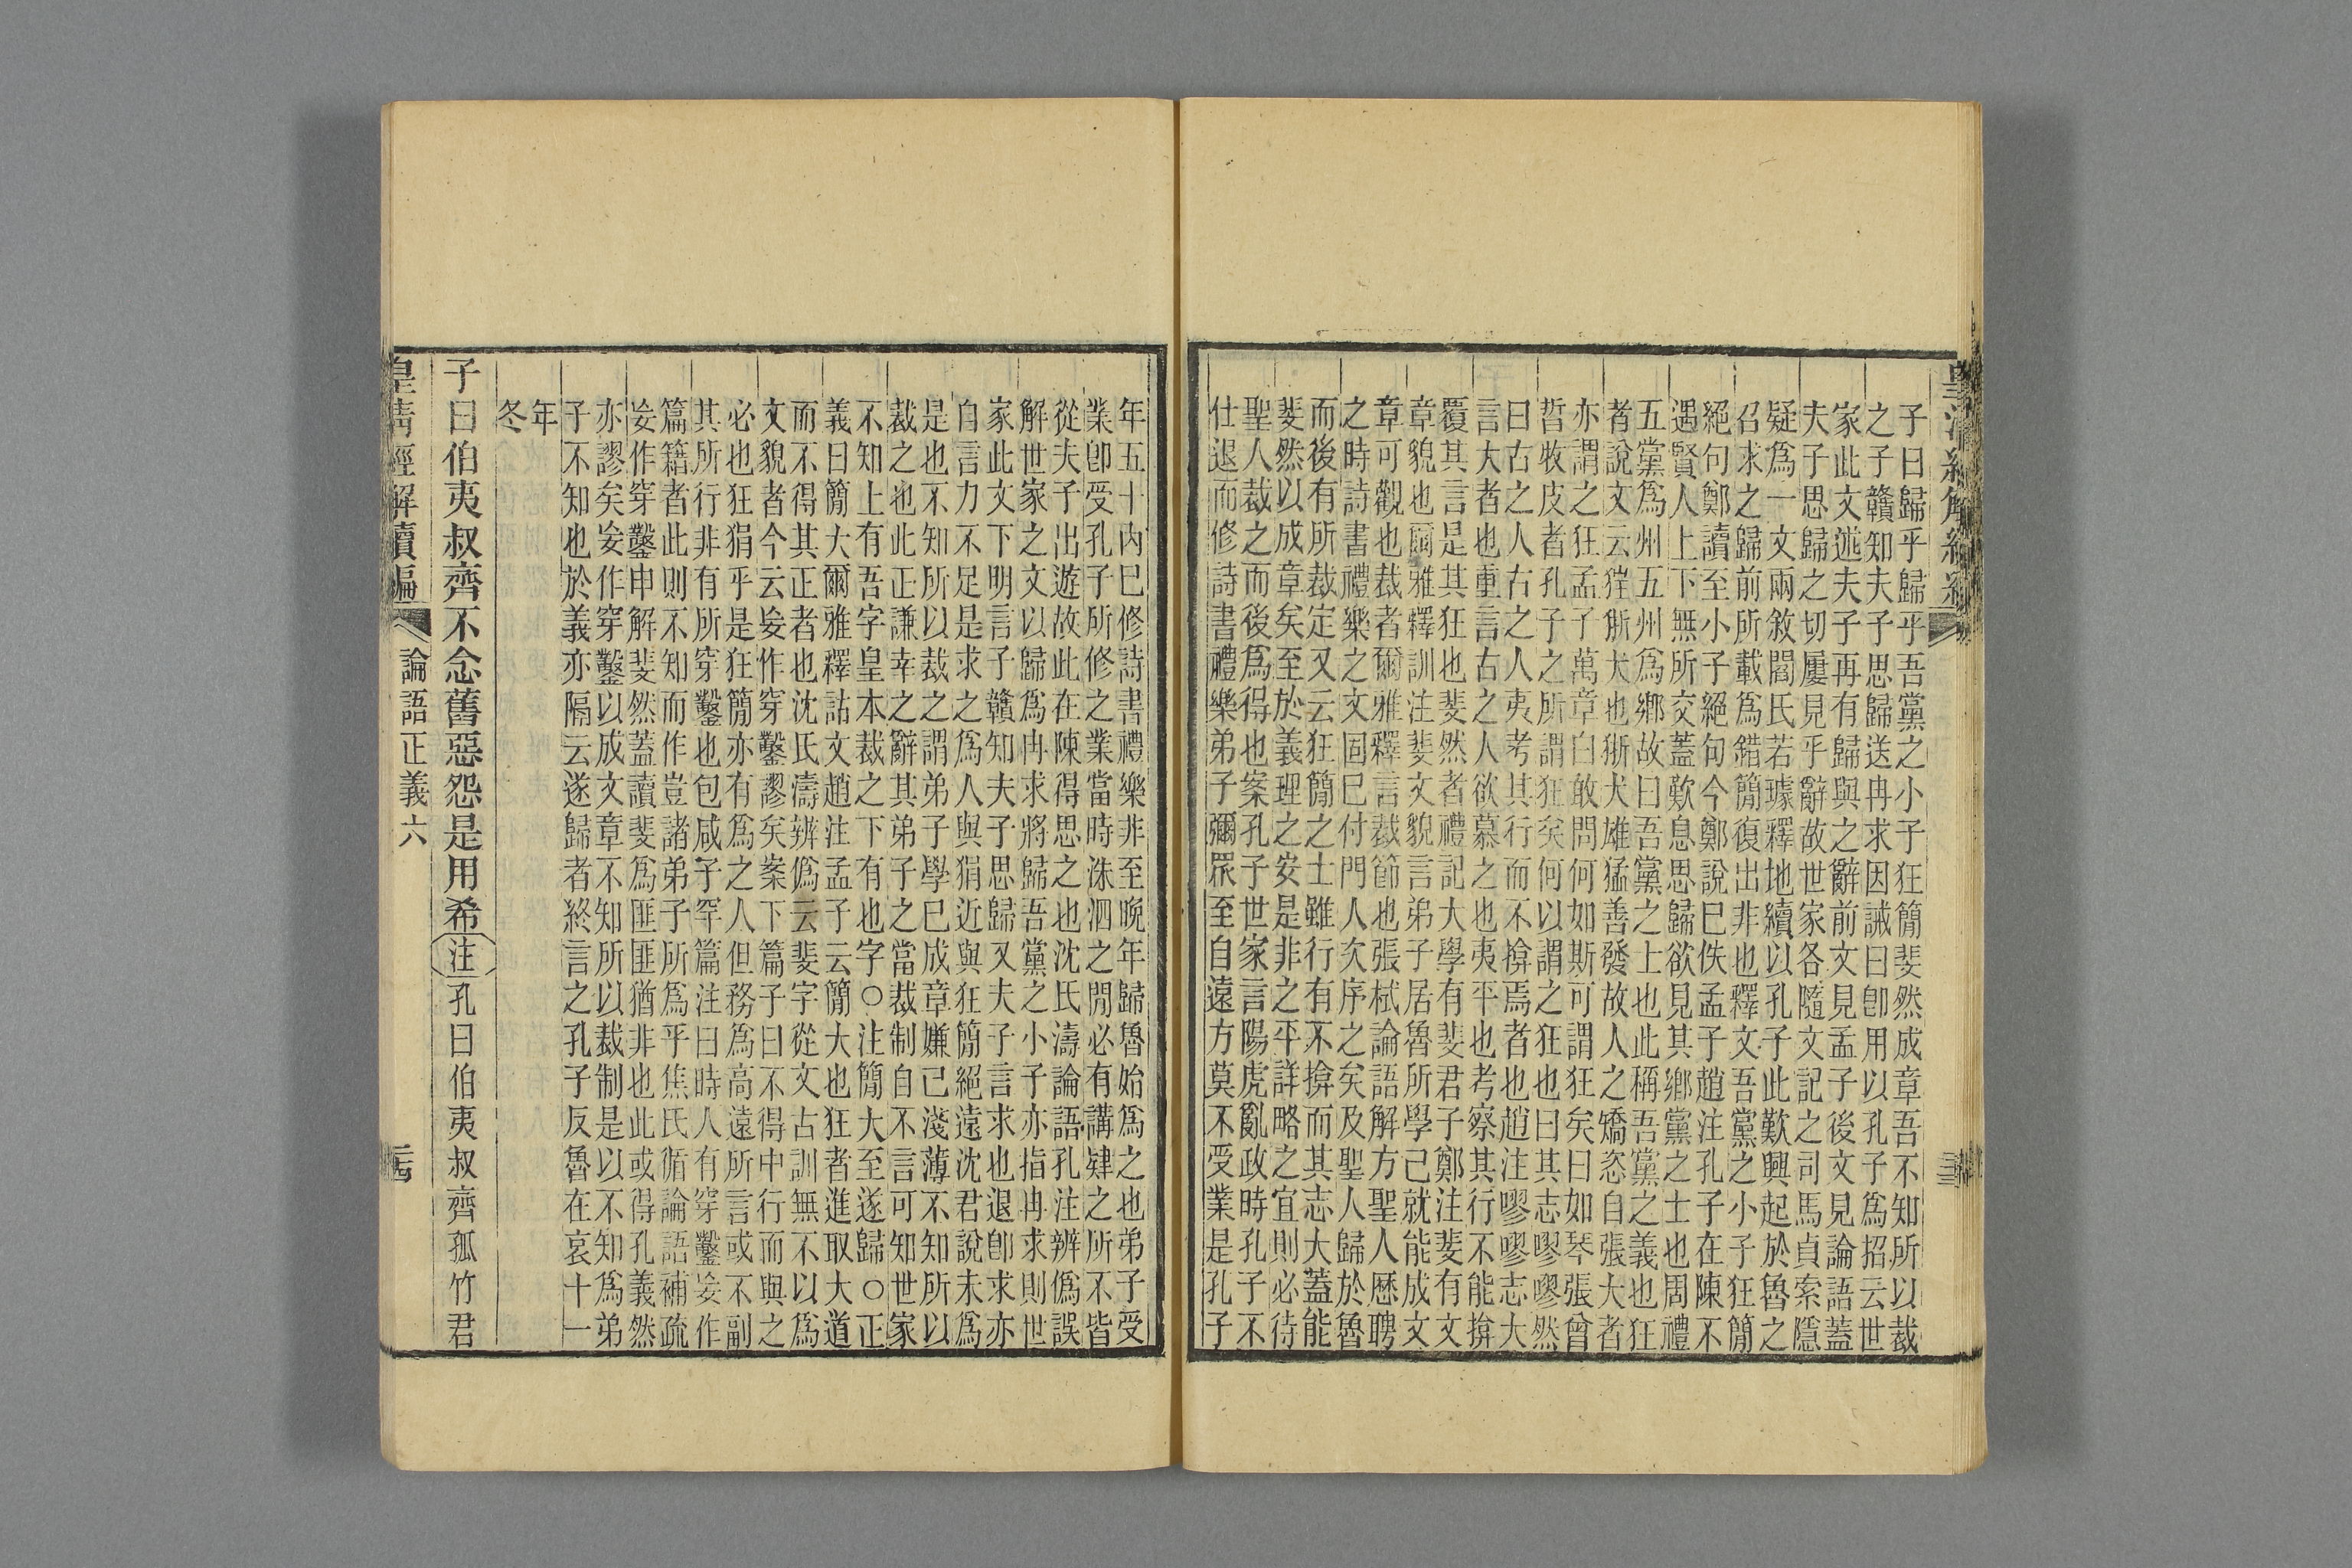 子曰歸乎歸乎吾黨之小子狂簡斐然成章吾不知所以裁
之子贛知夫子思歸送冉求因誡曰卽用以孔子爲招云世
家此文述夫子再有歸與之辭前文見孟子後文見論語蓋
夫子思歸之切屢見乎辭故世家各隨文記之司馬貞索隱
疑爲一文兩敘閻氏若璩釋地續以孔子此歎興起於魯之
召求之歸前所載爲錯簡復出非也釋文吾黨之小子狂簡
絕句鄭讀至小子絕句今鄭說已佚孟子趙注孔子在陳不
遇賢人上下無所交蓋歎息思歸欲見其鄉黨之士也周禮
五黨爲州五州爲鄉故曰吾黨之上也此稱吾黨之義也狂
者說文云狾犬也狾犬雄猛善發故人之矯恣自張大者
亦謂之狂孟子萬章曰敢問何如斯可謂狂矣曰如琴張曾
晳牧皮者孔子之所謂狂矣何以謂之狂也曰其志嘐嘐然
曰古之人古之人夷考其行而不揜焉者也趙注嘐嘐志大
言大者也重言古之人欲慕之也夷平也考察其行不能揜
覆其言是其狂也斐然者禮記大學有斐君子鄭注斐有文
章貌也爾雅釋訓注斐文貌言弟子居魯所學已就能成文
章可觀也裁者爾雅釋言裁節也張栻論語解方聖人歷聘
之時詩書禮樂之文固已付門人次序之矣及聖人歸於魯
而後有所裁定又云狂簡之士雖行有不揜而其志大蓋能
斐然以成章矣至於義理之安是非之平詳略之宜則必待
聖人裁之而後爲得也案孔子世家言陽虎亂政時孔子不
仕退而修詩書禮樂弟子彌眾至自遠方莫不受業是孔子
年五十內已修詩書禮樂非至晚年歸魯始爲之也弟子受
業卽受孔子所修之業當時洙泗之閒必有講肄之所不皆
從夫子出遊故此在陳得思之也沈氏濤論語孔注辨僞誤
解世家之文以歸爲冉求將歸吾黨之小子亦指冉求則世
家此文下明言子贛知夫子思歸又夫子言求也退卽求亦
自言力不足是求之爲人與狷近與狂簡絕遠沈君說未爲
是也不知所以裁之謂弟子學已成章嫌己淺薄不知所以
裁之也此正謙幸之辭其弟子之當裁制自不言可知世家
不知上有吾字皇本裁之下有也字○注簡大至遂歸○正
義曰簡大爾雅釋詁文趙注孟子云簡大也狂者進取大道
而不得其正者也沈氏濤辨僞云斐字從文古訓無不以爲
文貌者今云妄作穿鑿謬矣案下篇子曰不得中行而與之
必也狂狷乎是狂簡亦有爲之人但務爲高遠所言或不副
其所行非有所穿鑿也包咸子罕篇注曰時人有穿鑿妄作
篇籍者此則不知而作豈諸弟子所爲乎焦氏循論語補疏
妄作穿鑿申解斐然蓋讀斐爲匪匪猶非也此或得孔義然
亦謬矣妄作穿鑿以成文章不知所以裁制是以不知爲弟
子不知也於義亦隔云遂歸者終言之孔子反魯在哀十一
年
冬
子曰伯夷叔齊不念舊惡怨是用希注孔曰伯夷叔齊孤竹君
皇清經解續編 論語正義六